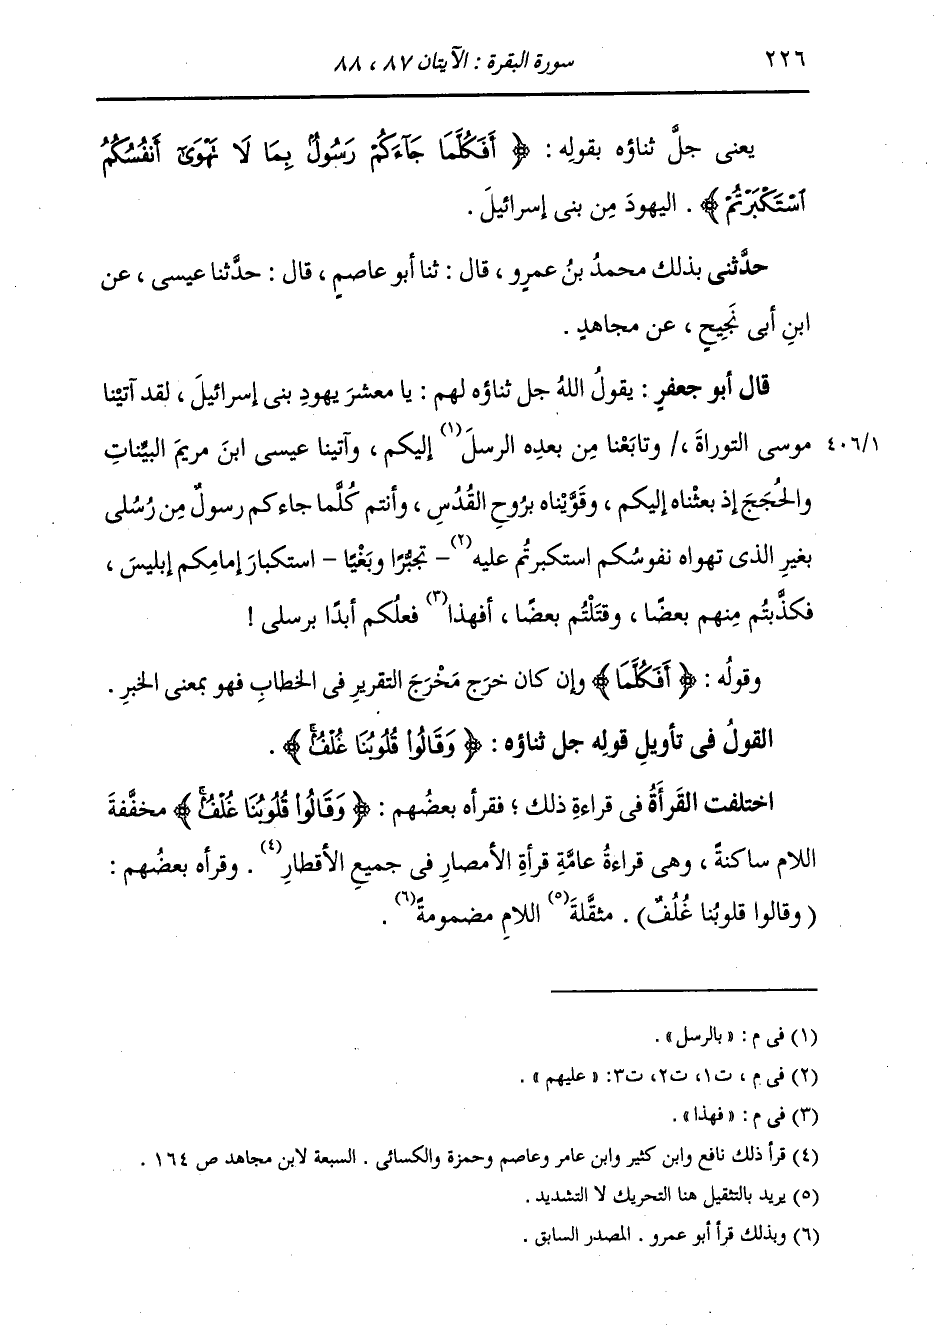 ٢٢٦ سورة البقرة : الآيتان ٨٧ ، ٨٨
يعنى جلَّ ثناؤه بقولِه : ﴿ أَفَكُلَّمَا جَآءَكُمْ رَسُولٌ بِمَا لَا تَهْوَىٰٓ أَنفُسُكُمُ
ٱسْتَكْبَرْتُمْ ﴾ . اليهودَ مِن بنى إسرائيلَ .
حدَّثنى بذلك محمدُ بنُ عمرٍو ، قال : ثنا أبو عاصمٍ ، قال : حدَّثنا عيسى ، عن
ابنِ أبى نَجِيحٍ ، عن مجاهدٍ .
قال أبو جعفرٍ : يقولُ اللهُ جل ثناؤه لهم : يا معشرَ يهودِ بنى إسرائيلَ ، لقد آتيْنا
٤٠٦/١ موسى التوراةَ ،/ وتابَعْنا مِن بعدِه الرسلَ(١) إليكم ، وآتينا عيسى ابنَ مريمَ البيِّناتِ
والحُجَجَ إذ بعثْناه إليكم ، وقوَّيْناه برُوحِ القُدُسِ ، وأنتم كُلَّما جاءكم رسولٌ مِن رُسُلى
بغيرِ الذى تهواه نفوسُكم استكبرتُم عليه(٢) – تجبُّرًا وبَغْيًا – استكبارَ إمامِكم إبليسَ ،
فكذَّبتُم مِنهم بعضًا ، وقتَلْتُم بعضًا ، أفهذا(٣) فعلُكم أبدًا برسلى !
وقولُه : ﴿ أَفَكُلَّمَا ﴾ وإن كان خرَج مَخْرَجَ التقريرِ فى الخطابِ فهو بمعنى الخبرِ .
القولُ فى تأويلِ قولِه جل ثناؤه : ﴿ وَقَالُوا۟ قُلُوبُنَا غُلْفٌۢ ﴾ .
اختلفت القَرأَةُ فى قراءةِ ذلك ؛ فقرأه بعضُهم : ﴿ وَقَالُوا۟ قُلُوبُنَا غُلْفٌۢ ﴾ مخفَّفةَ
اللامِ ساكنةً ، وهى قراءةُ عامَّةِ قرأةِ الأمصارِ فى جميعِ الأقطارِ(٤) . وقرأه بعضُهم :
( وقالوا قلوبُنا غُلُفٌ ) . مثقَّلةَ(٥) اللامِ مضمومةً(٦) .
(١) فى م : « بالرسل » .
(٢) فى م ، ت١، ت٢، ت٣: « عليهم » .
(٣) فى م : « فهذا » .
(٤) قرأ ذلك نافع وابن كثير وابن عامر وعاصم وحمزة والكسائى . السبعة لابن مجاهد ص ١٦٤ .
(٥) يريد بالتثقيل هنا التحريك لا التشديد .
(٦) وبذلك قرأ أبو عمرو . المصدر السابق .